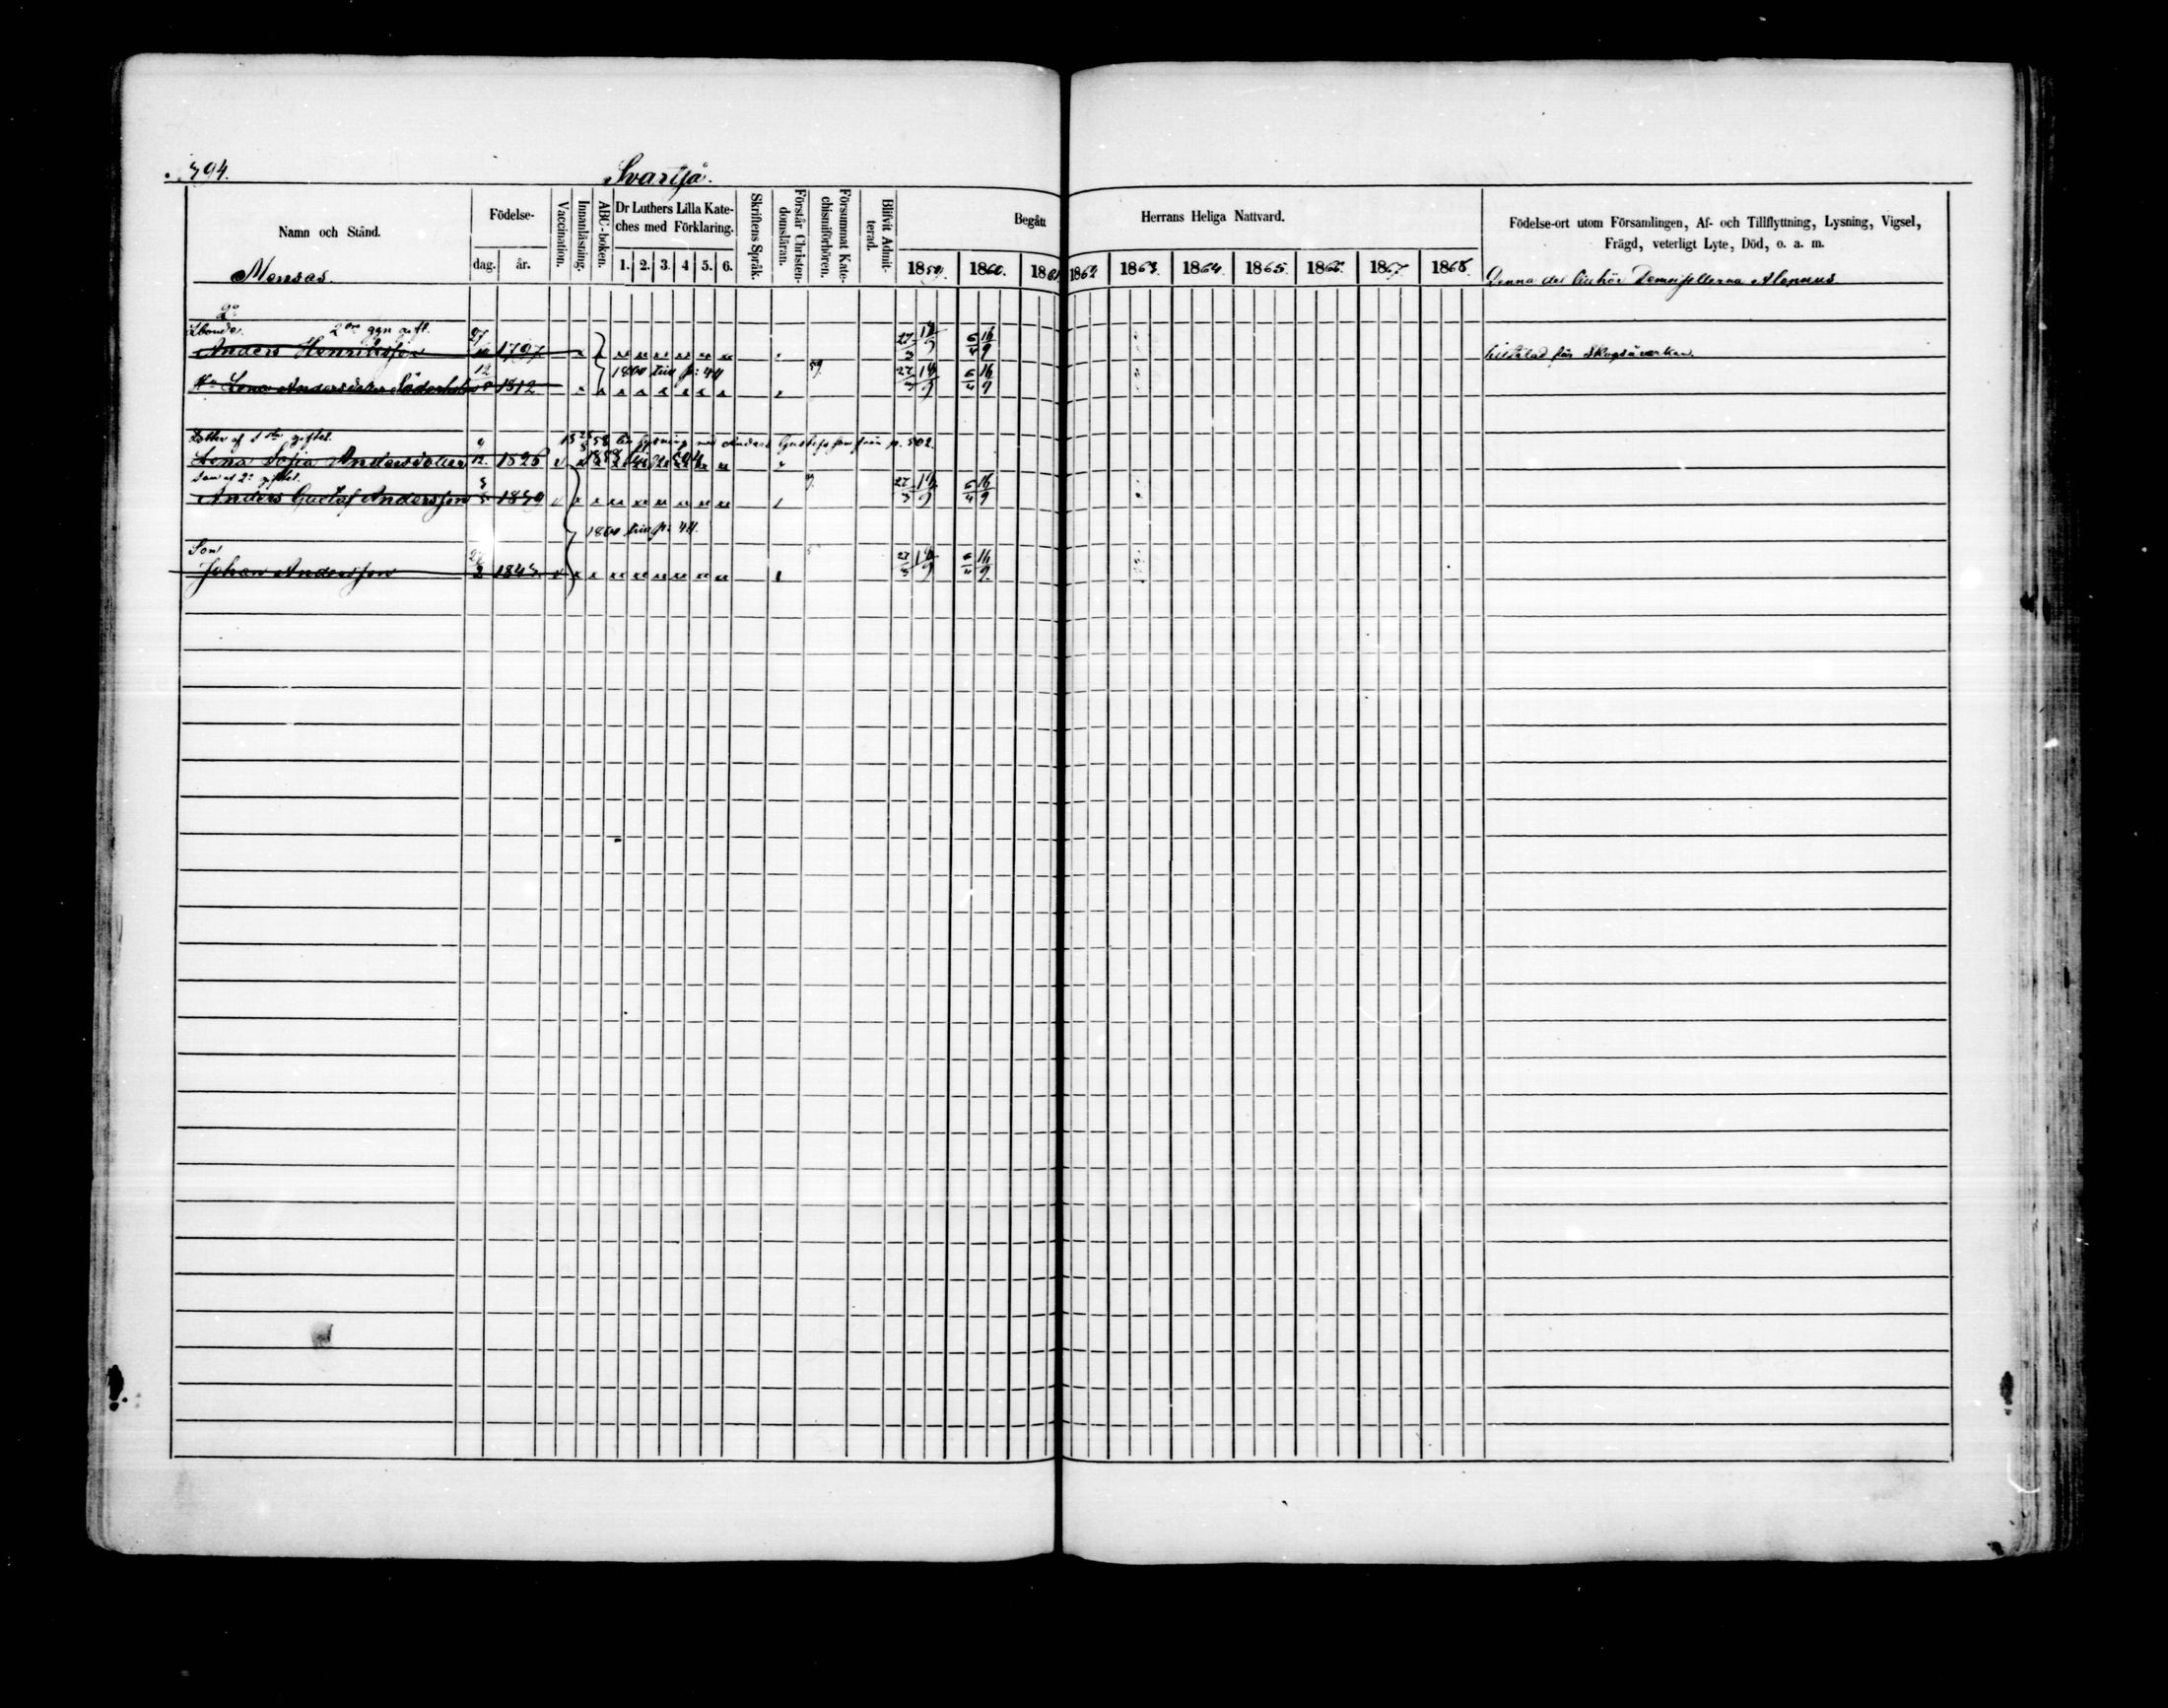 394.
Svartså.
Namn och Stånd.
Födelse-
dag. år.
Vaccination.
Innanläsning.
ABC-boken.
Dr Luthers Lilla Kate-
ches med Förklaring.
1. 2. 3. 4 5. 6.
Skriftens Språk.
Förstår Christen-
domsläran.
Försummat Kate-
chismiförhören.
Blifvit Admit-
terad.
Begått Herrans Heliga Nattvard.
1859. 1860. 1861 1862 1863. 1864. 1865. 1866. 1867. 1868.
Födelse-ort utom Församlingen, Af- och Tillflyttning, Lysning, Vigsel,
Frägd, veterligt Lyte, Död, o. a. m.
Mensas. Denna del tillhör Demoisellerna Alopaeus
2o
Åbonde. 2dra ggn gift.
Anders Henriksson 27 1797 27/3 14/9 6/4 16/9 tilltalad för Skogsåverkan.
1860 till p: 44 59
Hu Lena Andersdotter Söderholm 12 1812 27/3 14/9 6/4 16/9
Dotter af 1sta giftet. lysning med Anders Gustafsson från p. 502
Lena Sofia Andersdotter 12. 1826 1858
Son af 2: giftet.
Anders Gustaf Andersson 1839 27/3 14/9 6/4 16/9
1860 till p: 44.
Son
Johan Andersson 1843 27/3 14/9 6/4 16/9